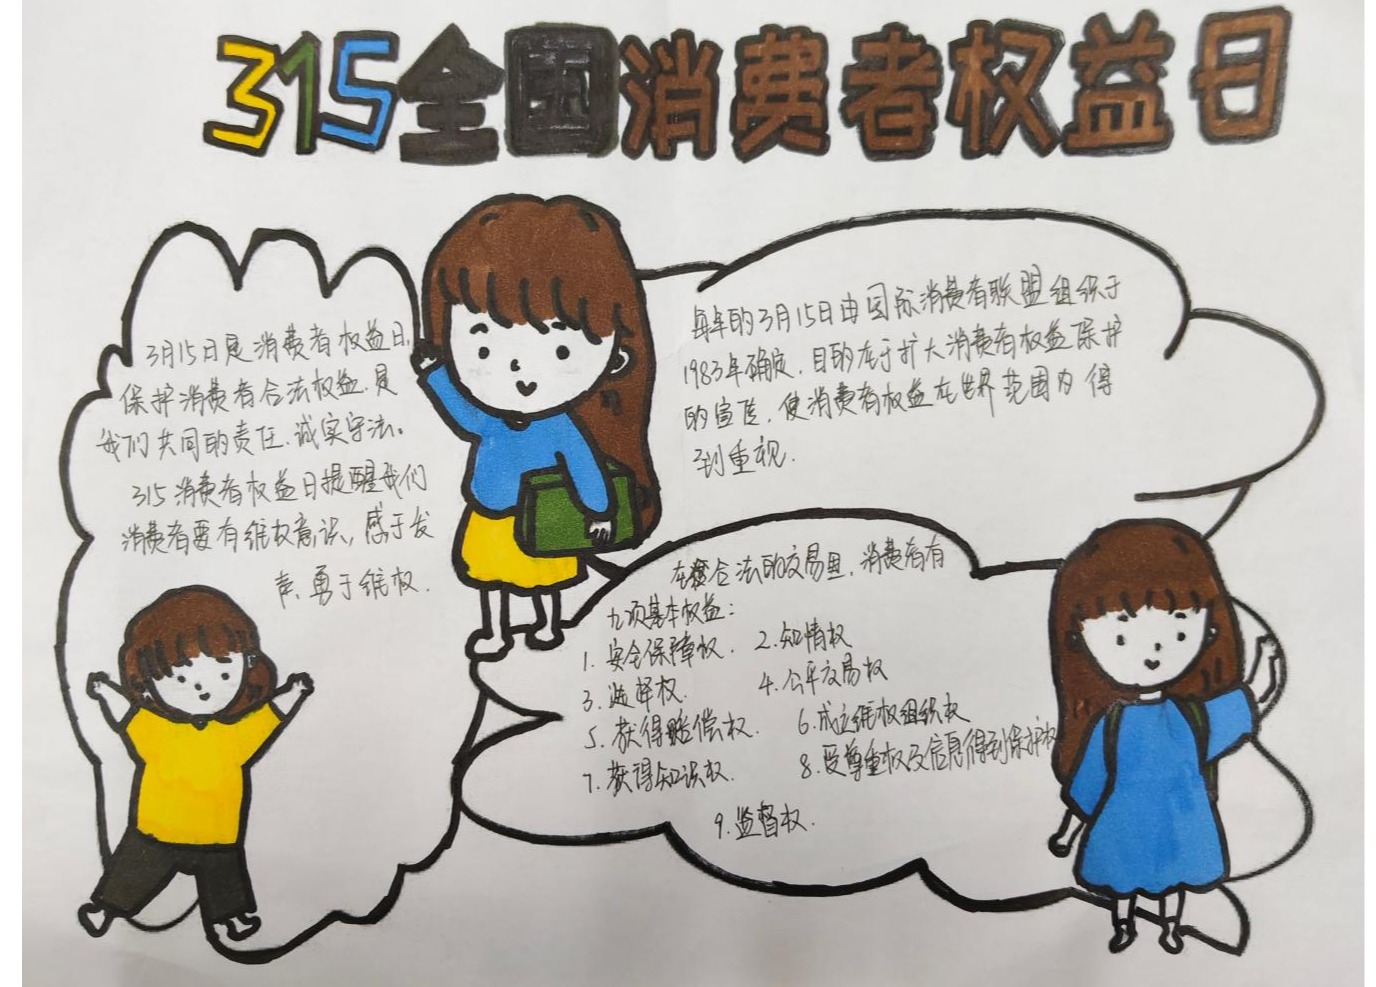 315全国消费者权益日
3月15日是消费者权益日,
保护消费者合法权益.是
我们共同的责任.诚实守法。
315消费者权益日提醒我们
消费者要有维权意识,感于发
声.勇于维权.
每年的3月15日由国际消费者联盟组织于
1983年确定.目的在于扩大消费者权益保护
的宣传.使消费者权益在世界范围内得
到重视.
在合法的交易里.消费者有
九项基本权益:
1.安全保障权. 2.知情权
3.选择权. 4.公平交易权
5.获得赔偿权. 6.成立维权组织权
7.获得知识权. 8.受尊重权及信息得到保护权
9.监督权.